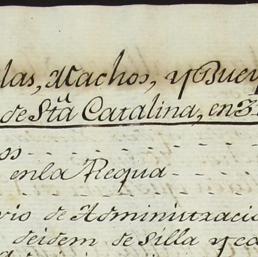 las, Machos, y Buey
de Sta Catalina, en 3
os
en la Requa
rio de Administracio
de idem de Silla y ca